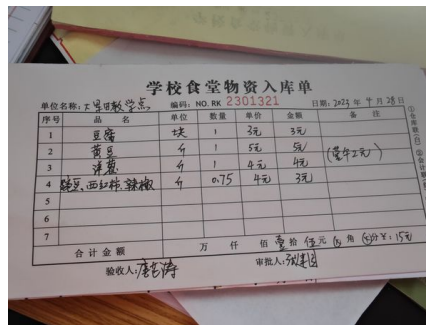 学校食堂物资入库单
单位名称: 教学点 编码: NO. RK 2301321 日期: 2023 年 9 月 28 日
序号 品 名 单位 数量 单价 金额 备 注
1 豆腐 块 1 3元 3元
2 黄豆 斤 1 5元 5元
3 洋葱 斤 1 4元 4元
4 豌豆、西红柿、辣椒 斤 0.75 4元 3元
5
6
7
合计金额 万 仟 佰 壹拾 伍元 角 分 ¥: 15元
验收人: 审批人: